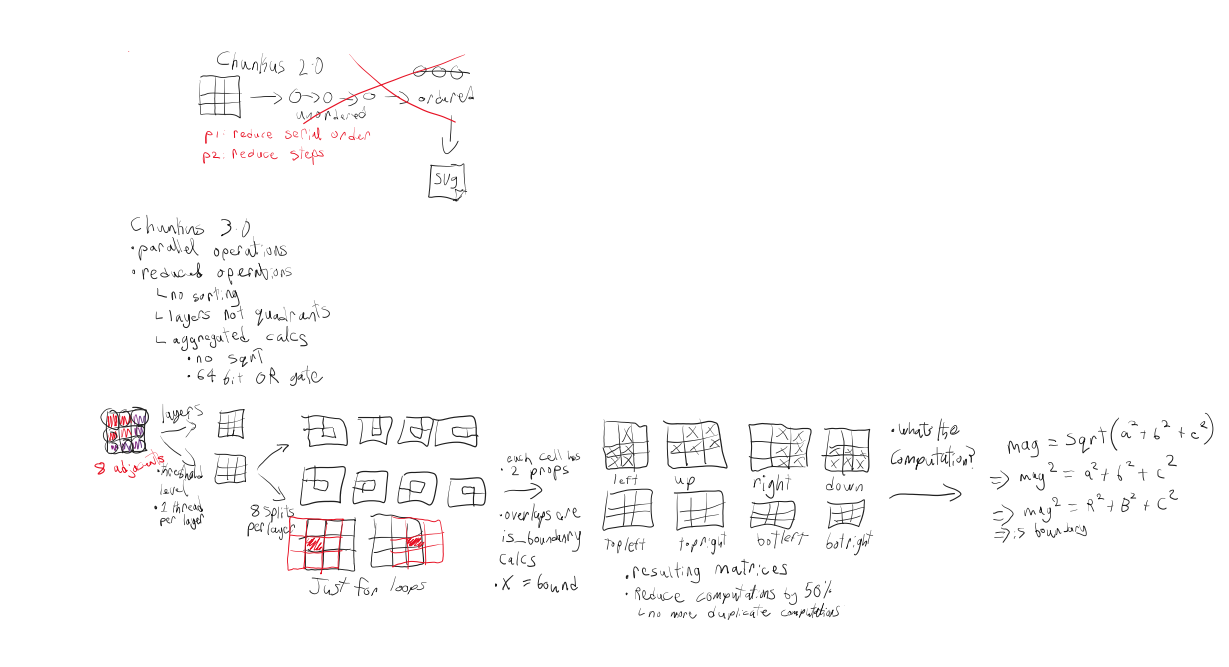 Chunkus 2.0
unordered
ordered
p1: reduce serial order
p2: reduce steps
svg
Chunkus 3.0
• parallel operations
• reduced operations
no sorting
layers not quadrants
aggregated calcs
• no sqrt
• 64 bit OR gate
layers
8 adjacents
• threshold
level
• 1 thread
per layer
8 splits
per layer
Just for loops
each cell has
2 props
• overlaps are
is_boundary
calcs
• X = bound
left
up
right
down
top left
top right
bot left
bot right
• resulting matrices
• Reduce computations by 50%
no more duplicate computations
• whats the
computation?
mag = sqrt(a² + b² + c²)
⇒ mag² = a² + b² + c²
⇒ mag² = R² + B² + C²
⇒ is boundary